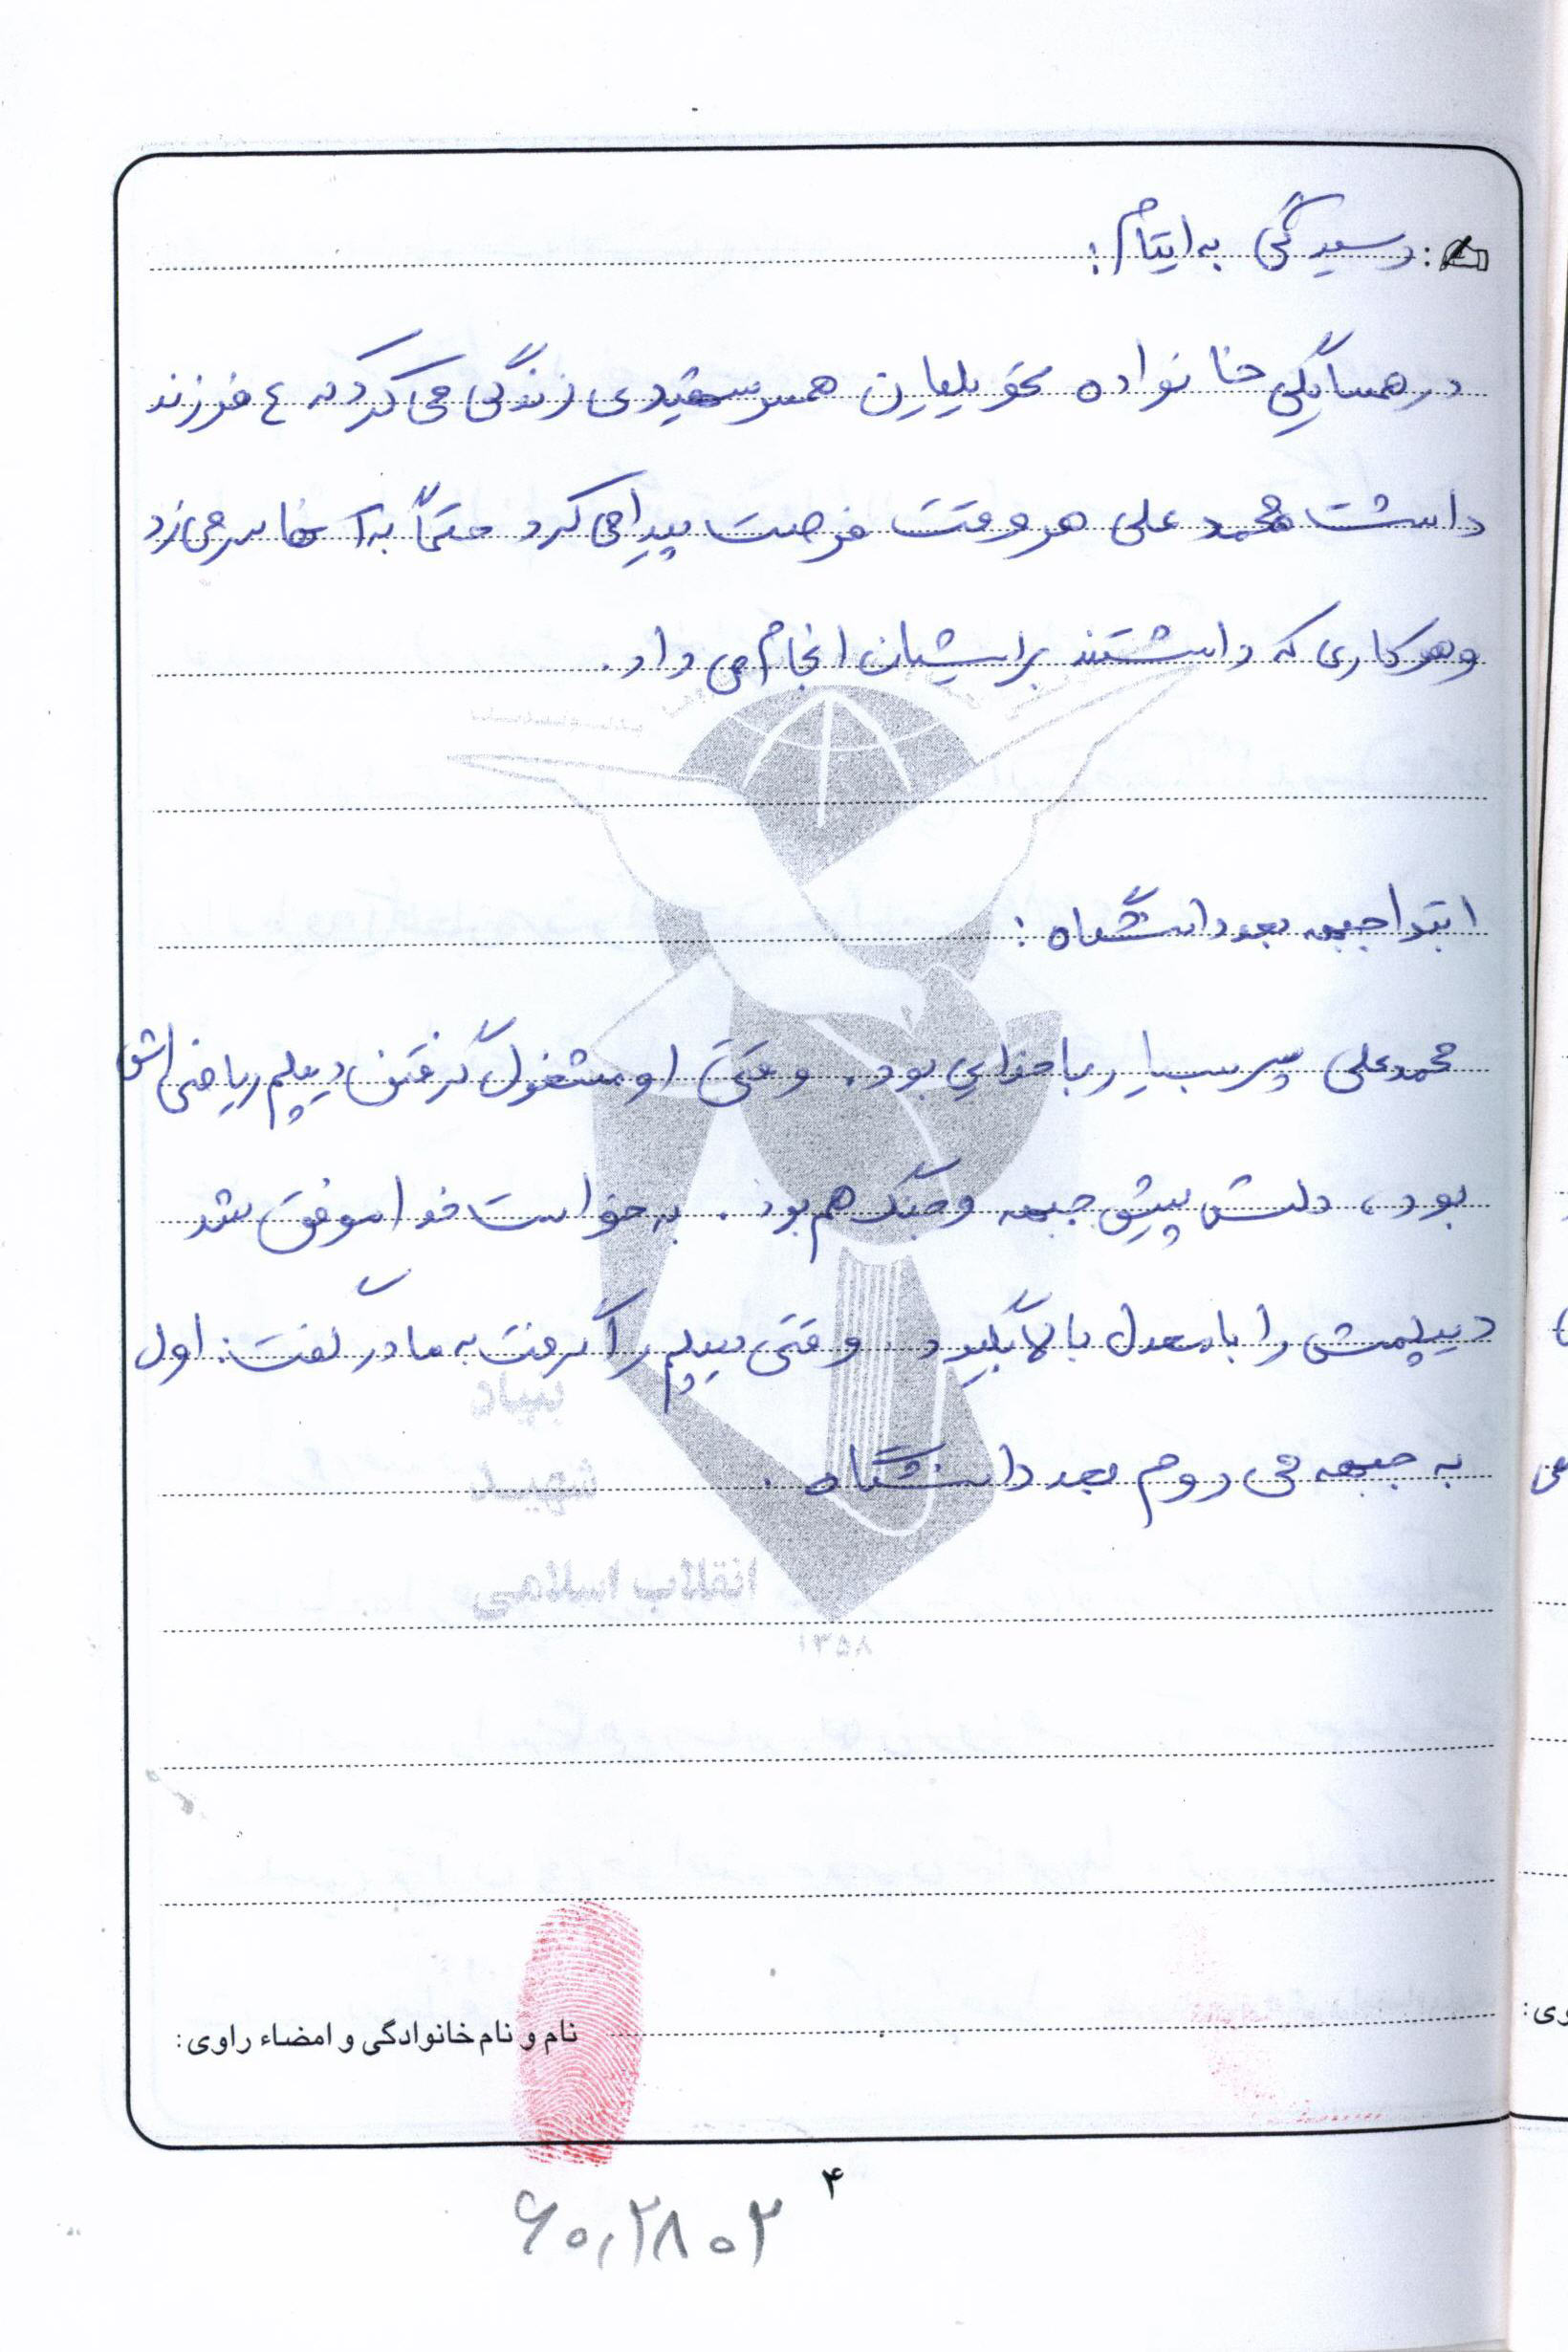 رسیدگی به ایتام:
در همسایگی خانواده همسر شهیدی زندگی می کرد که ٤ فرزند
داشت محمد علی هر وقت فرصت پیدا می کرد حتماً به آنها سر می زد
و هر کاری که داشتند برایشان انجام می داد.
ابتدا جبهه بعد دانشگاه:
محمد علی پسر بسیار با خدایی بود. وقتی او مشغول گرفتن دیپلم ریاضی اش
بود، دلش پیش جبهه و جنگ هم بود. به خواست خدا موفق شد
دیپلمش را با معدل بالا بگیرد. وقتی دیپلم را گرفت به مادر گفت: اول
به جبهه می روم بعد دانشگاه.
بنیاد
شهید
انقلاب اسلامی
۱۳۵۸
نام و نام خانوادگی و امضاء راوی:
۴
۶۰۱۲۸۰۲